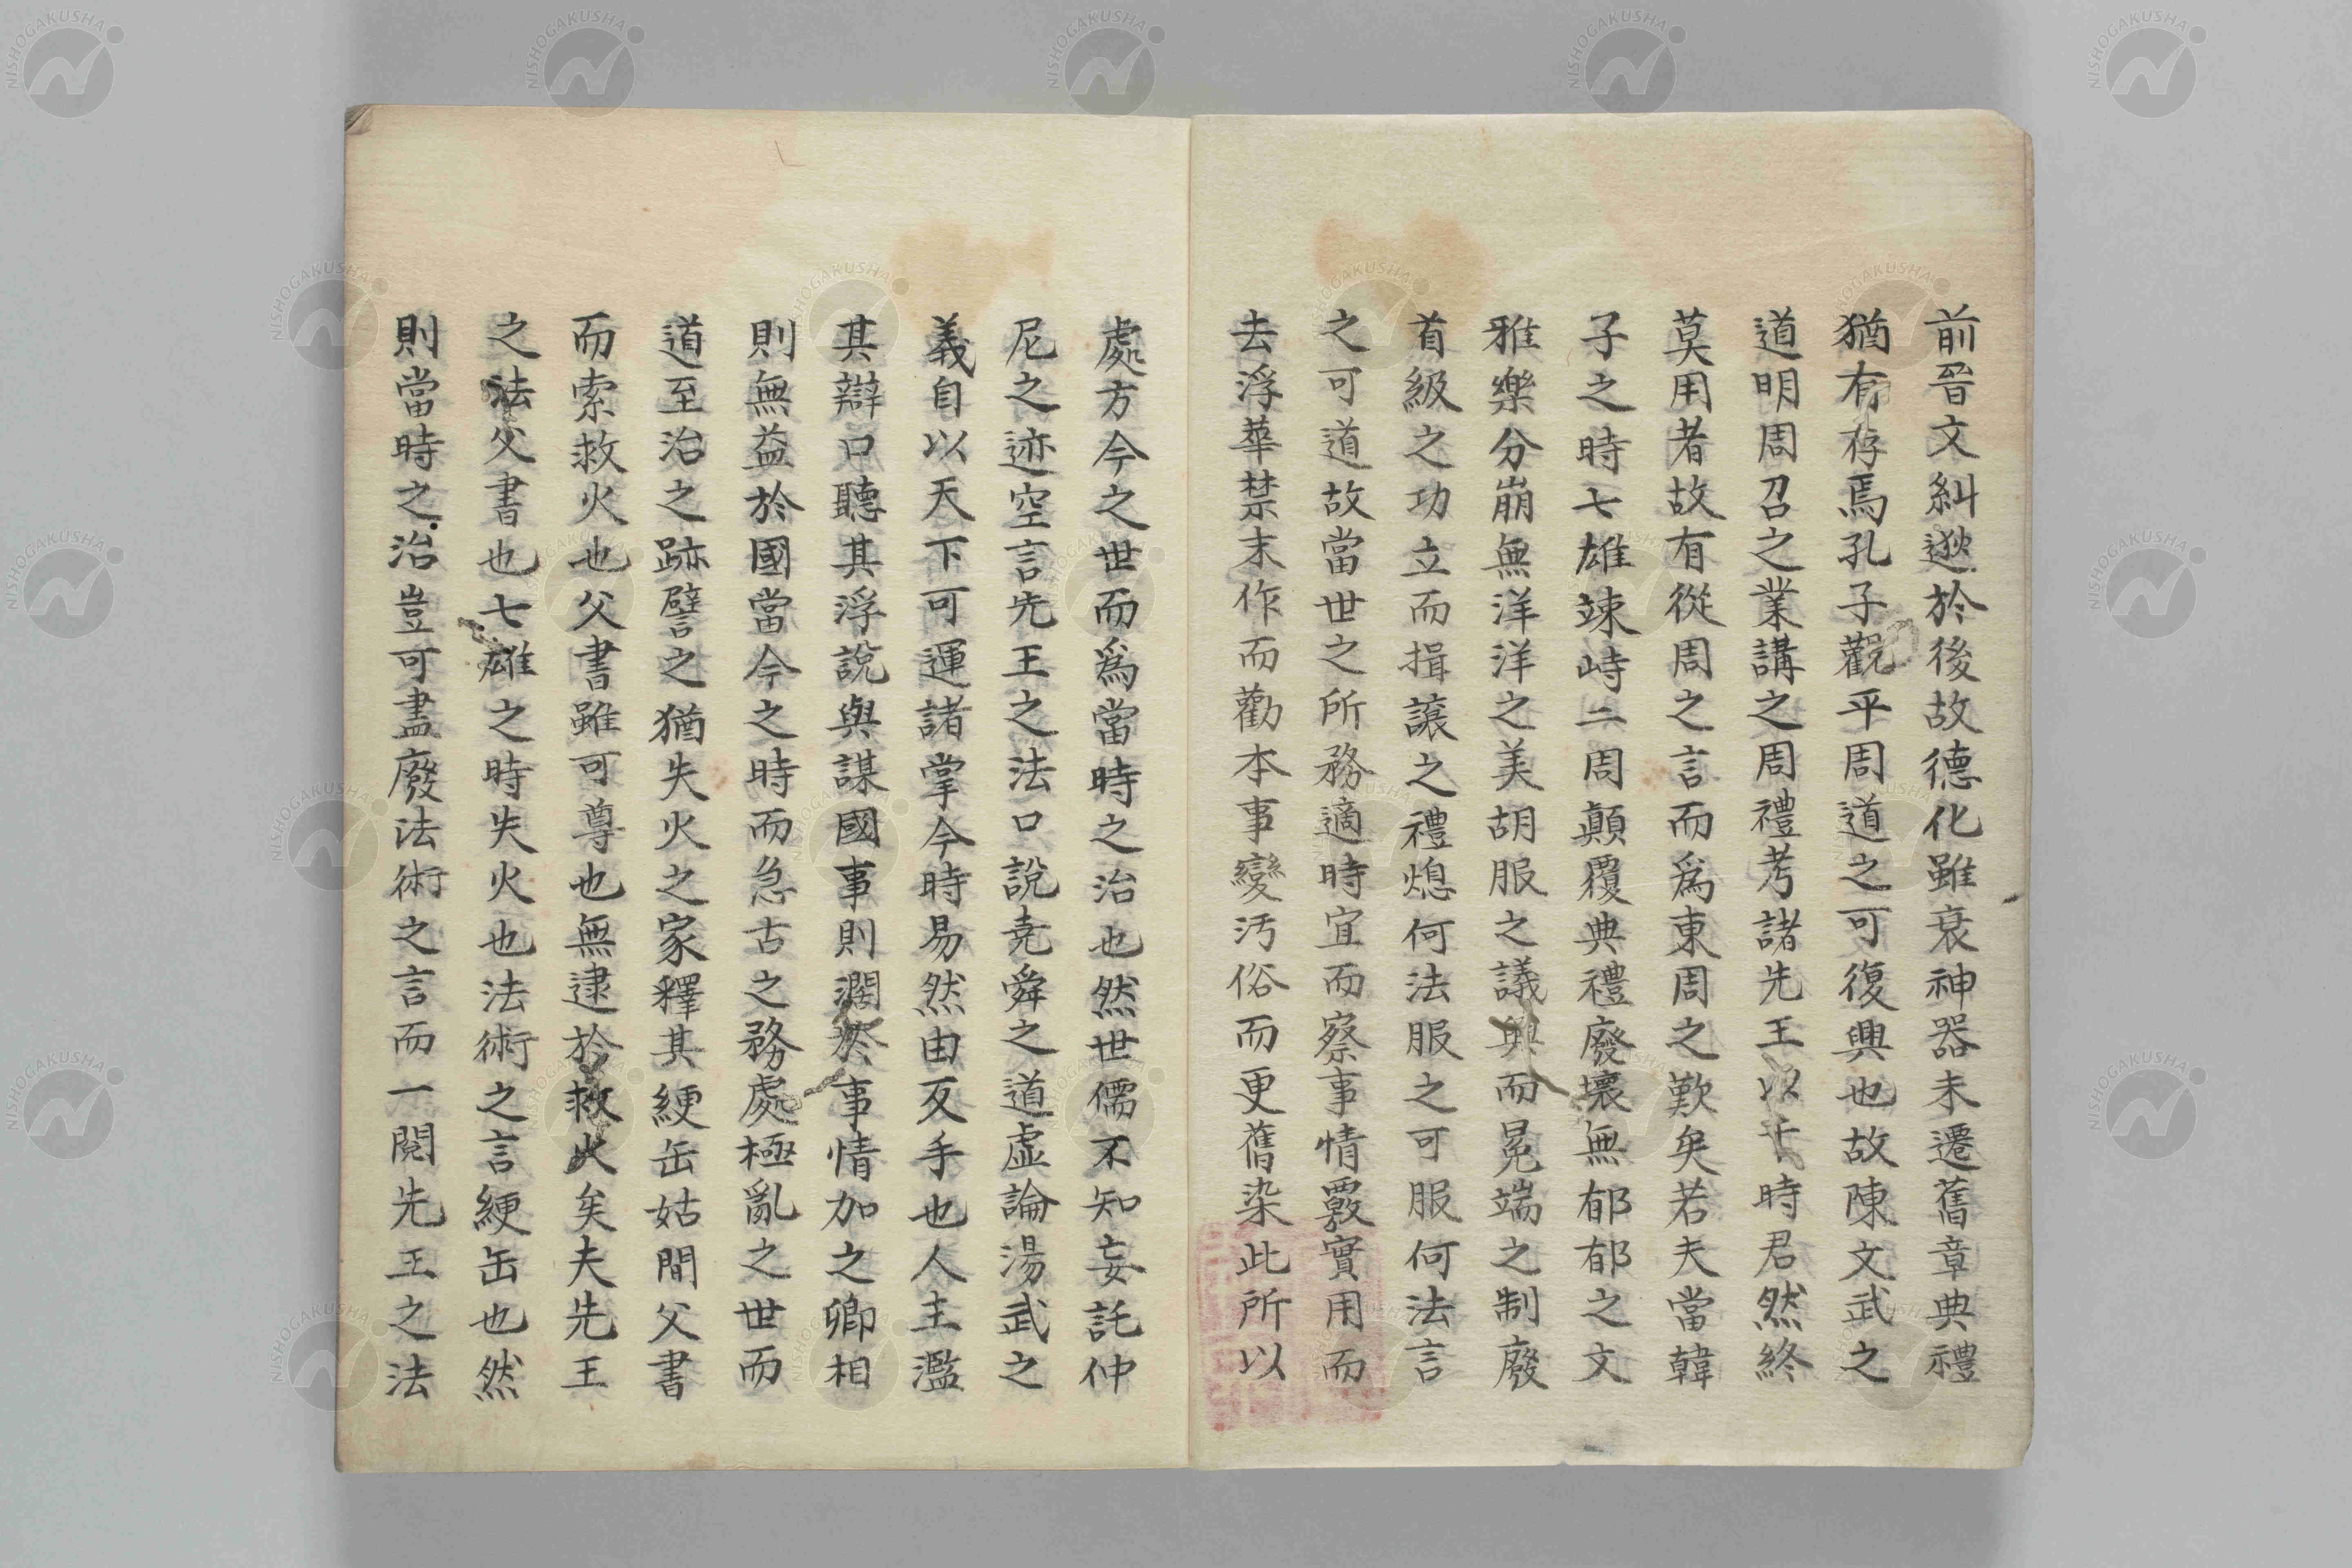 前晉文糾逖於後故德化雖衰神器未遷舊章典禮
猶有存焉孔子觀乎周道之可復興也故陳文武之
道明周召之業講之周禮考諸先王以干時君然終
莫用者故有從周之言而爲東周之歎矣若夫當韓
子之時七雄竦峙二周顛覆典禮廢壞無郁郁之文
雅樂分崩無洋洋之美胡服之議興而冕端之制廢
首級之功立而揖讓之禮熄何法服之可服何法言
之可道故當世之所務適時宜而察事情覈實用而
去浮華禁末作而勸本事變汚俗而更舊染此所以
處方今之世而爲當時之治也然世儒不知妄託仲
尼之迹空言先王之法口說堯舜之道虛論湯武之
義自以天下可運諸掌今時易然由反手也人主濫
其辯口聽其浮說與謀國事則濶於事情加之卿相
則無益於國當今之時而急古之務處極亂之世而
道至治之跡譬之猶失火之家釋其綆缶姑間父書
而索救火也父書雖可尊也無逮於救火矣夫先王
之法父書也七雄之時失火也法術之言綆缶也然
則當時之治豈可盡廢法術之言而一閱先王之法
NISHOGAKUSHA